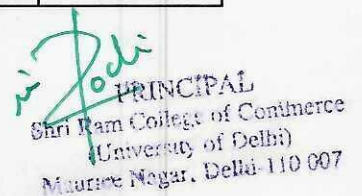 PRINCIPAL
Shri Ram College of Commerce
(University of Delhi)
Maurice Nagar, Delhi-110 007